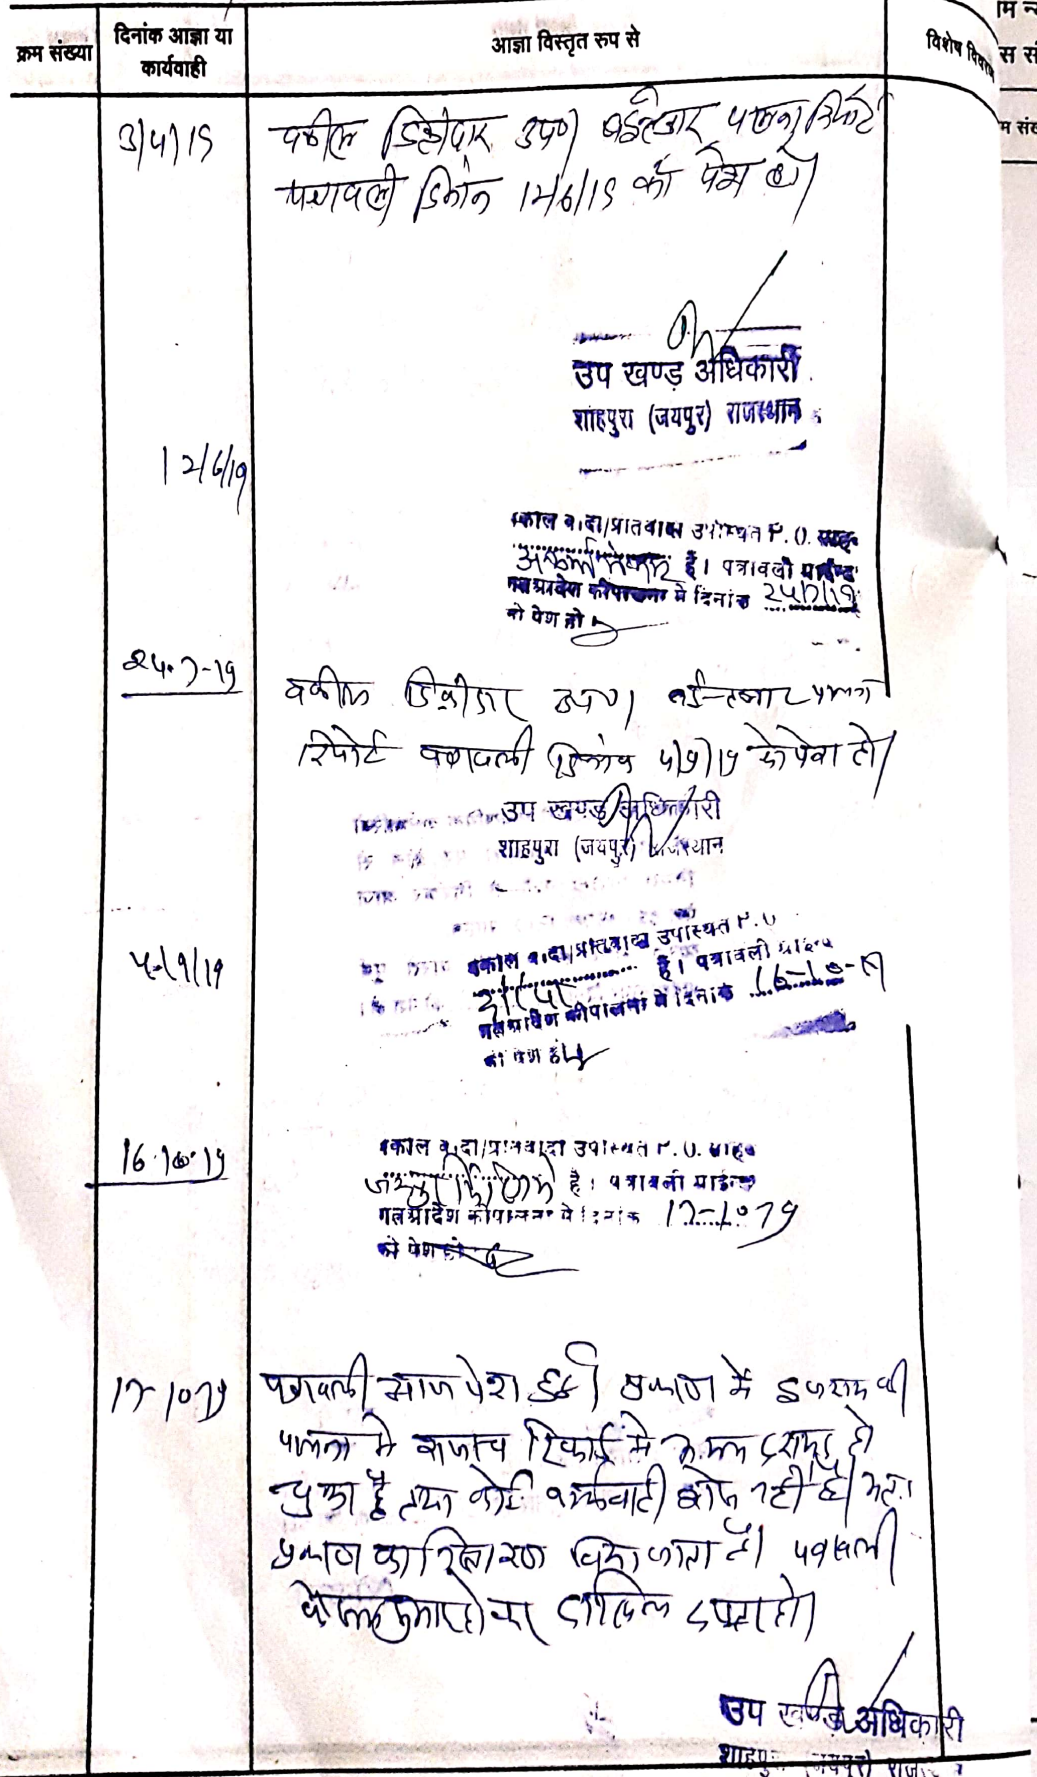 क्रम संख्या
दिनांक आज्ञा या
कार्यवाही
आज्ञा विस्तृत रुप से
विशेष विवरण
3/4/19
वकील डिक्रीदार उप० बइन्तजार पालना रिपोर्ट
पत्रावली दिनांक 12/6/19 को पेश हो।
उप खण्ड अधिकारी
शाहपुरा (जयपुर) राजस्थान
12/6/19
वकील वादी/प्रतिवादी उपस्थित P. O. साहब
है। पत्रावली
गत आदेश की पालना में दिनांक 24/7/19
को पेश हो
24.7-19
वकील डिक्रीदार उप०। बइन्तजार पालना
रिपोर्ट पत्रावली दिनांक 4/9/19 को पेश हो।
उप खण्ड अधिकारी
शाहपुरा (जयपुर) राजस्थान
4/9/19
वकील वादी/प्रतिवादी उपस्थित P. O
है। पत्रावली
गत आदेश की पालना में दिनांक 16-10-19
को पेश हो
16.10.19
वकील वादी/प्रतिवादी उपस्थित P. O. साहब
है। पत्रावली
गत आदेश की पालना में दिनांक 17-10-19
को पेश हो
17-10-19
पत्रावली आज पेश हुई। प्रकरण में इजराय की
पालना में राजस्व रिकार्ड में अमल दरामद हो
चुका है तथा कोई कार्यवाही शेष नहीं है। अतः
प्रकरण का निस्तारण किया जाता है। पत्रावली
फैसल शुमार होकर दाखिल दफ्तर हो।
उप खण्ड अधिकारी
शाहपुरा (जयपुर)